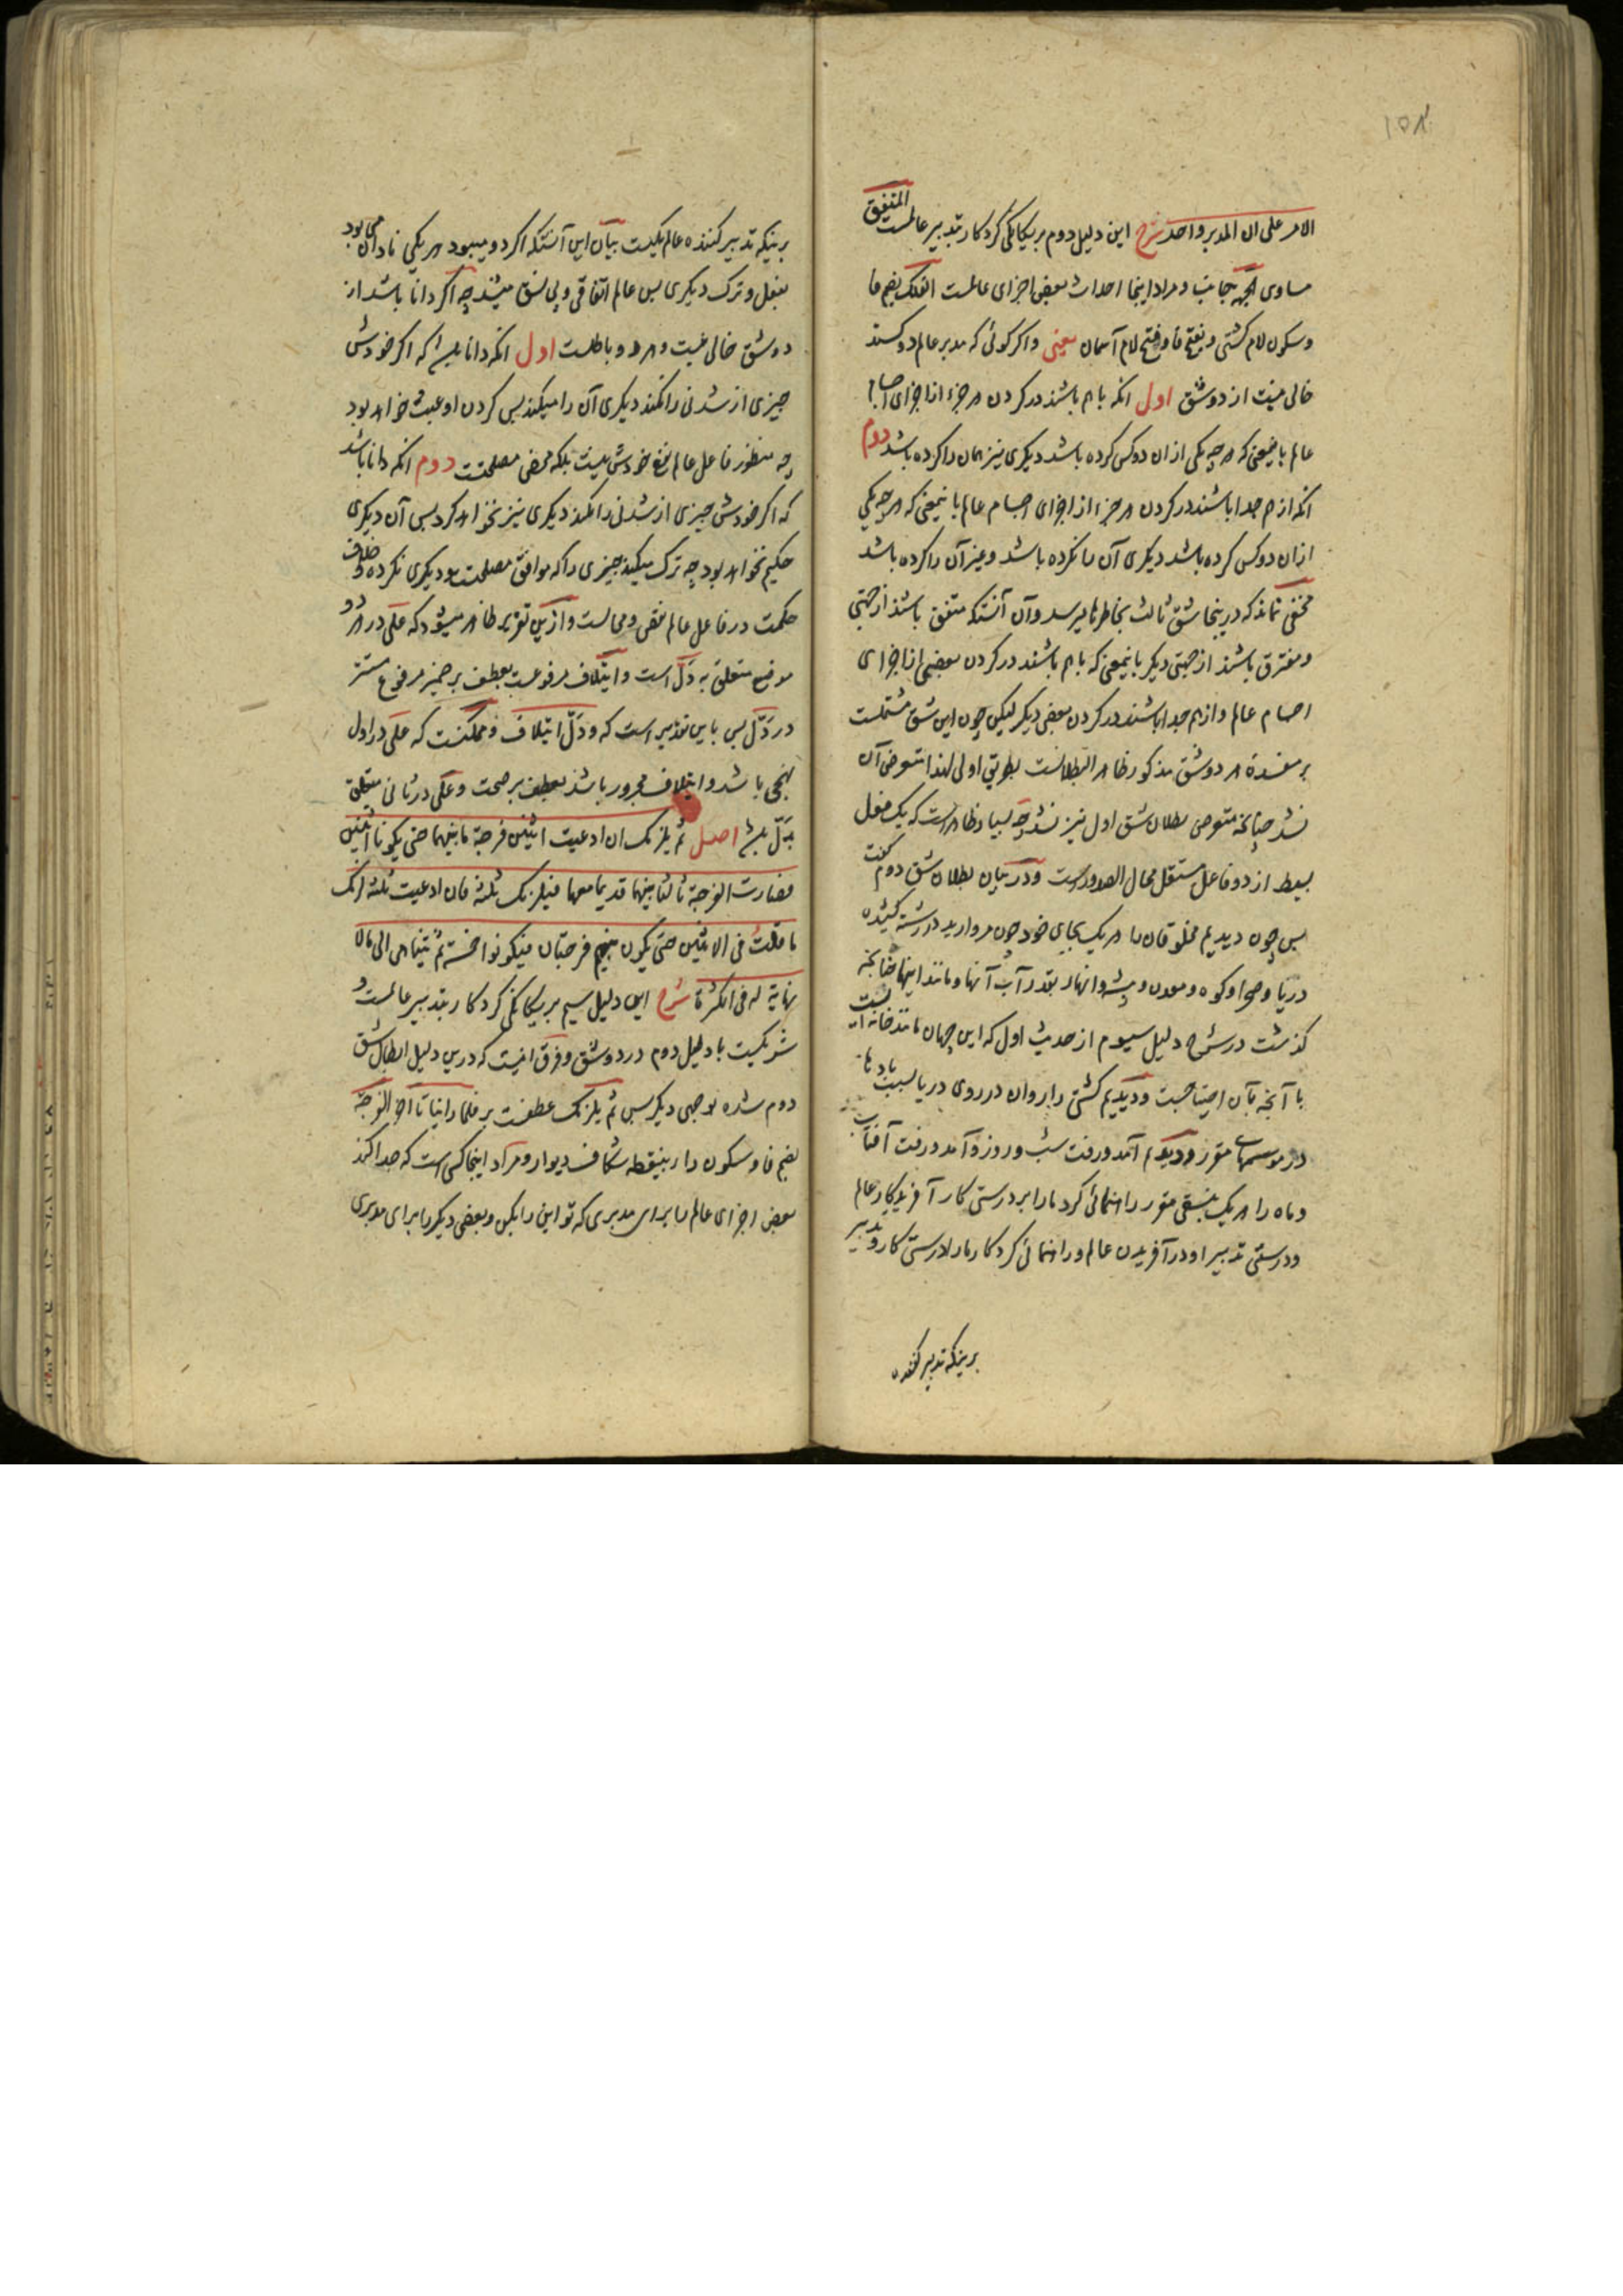 ١٥٨
الامر علی ان المدبر واحد شرح این دلیل دوم بر یکانگی کردکار بتدبیر عالمست المتفق
مساوی الجهه جانب و مراد اینجا احداث بعض اجزای عالمست الفلک بضم فا
و سکون لام کشتی و بفتح فا و فتح لام آسمان یعنی و اکر کوئی که مدبر عالم دو کسند
خالی نیست از دو شق اول انکه باهم باشند در کردن هر جزء از اجزای اجسام
عالم باینمعنی که هر چه یکی ازان دو کس کرده باشد دیکری نیز همان را کرده باشد دوم
انکه از هم جدا باشند در کردن هر جزء از اجزای اجسام عالم باینمعنی که هر چه یکی
ازان دو کس کرده باشد دیکری آن را نکرده باشد و غیر آن را کرده باشد
مخفی نماند که درینجا شق ثالث بخاطرها میرسد و آن آنستکه متفق باشند از جهتی
و مفترق باشند از جهتی دیکر باینمعنی که باهم باشند در کردن بعضی از اجزای
اجسام عالم و از هم جدا باشند در کردن بعضی دیکر لیکن چون این شق مشتملست
بر مفسدۀ هر دو شق مذکور ظاهر البطلانست بطریق اولی لهذا متعرض آن
نشد چنانچه متعرض بطلان شق اول نیز نشد چه بسیار ظاهر است که یک فعل
بسیط از دو فاعل مستقل محال الصدور است و در بیان بطلان شق دوم گفت
پس چون دیدیم مخلوقان را هر یک بجای خود چون مروارید در رشته کشیده
دریا و صحرا و کوه و معدن و بیشه و انهار بقدر آب آنها و مانند اینها چنانچه
کذشت در شرح دلیل سیوم از حدیث اول که این جهان مانند خانه ایست
با آنچه بآن احتیاجست و دیدیم کشتی را روان در روی دریا بسبب بادها
در موسمهای مقرر و دیدیم آمد و رفت شب و روز و آمد و رفت آفتاب
و ماه را هر یک بنسقی مقرر راهنمائی کرد ما را بر درستی کار آفریدکار عالم
و درستی تدبیر او در آفریدن عالم و راهنمائی کرد کار ما را درستی کار و تدبیر
برینکه تدبیر کننده
برینکه تدبیر کنندۀ عالم یکیست بیان این آنستکه اکر دو میبود هر یکی نادان می بود
بفعل و ترک دیکری پس عالم اتفاقی و بی نسق میشد چه اکر دانا باشد از
دو شق خالی نیست و هر دو باطلست اول انکه دانا باشد که اکر خودش
چیزی از شدنی را نکند دیکری آن را میکند پس کردن او عبث خواهد بود
چه منظور فاعل عالم نفع خودش نیست بلکه محض مصلحتست دوم انکه دانا باشد
که اکر خودش چیزی از شدنی را نکند دیکری نیز نخواهد کرد پس آن دیکری
حکیم نخواهد بود چه ترک میکند چیزی را که موافق مصلحت بود دیکری نکرده و خلاف
حکمت در فاعل عالم نقص و محالست و ازین تقریر ظاهر میشود که علی در هر دو
موضع متعلق به دل است و ایتلاف مرفوعست بعطف بر ضمیر مرفوع مستتر
در دل پس باین تقدیر است که و دل ایتلاف و ممکنست که علی در اول
نهجی باشد و ایتلاف مجرور باشد بعطف بر صحت و علی در ثانی متعلق
بدل باشد اصل ثم یلزمک ان ادعیت اثنین فرجة ما بینهما حتی یکونا اثنین
فصارت الفرجة ثالثا بینهما قدیما معهما فیلزمک ثلثة فان ادعیت ثلثة لزمک
ما قلت فی الاثنین حتی یکون بینهم فرجتان فیکونوا خمسة ثم یتناهی الی ما لا
نهایة له فی الکثرة شرح این دلیل سیم بر یکانگی کردکار بتدبیر عالمست و
شریکست با دلیل دوم در دو شق و فرق اینست که درین دلیل ابطال شق
دوم شده بوجهی دیکر پس ثم یلزمک عطفست بر فلما راینا تا آخر الفرجة
بضم فا و سکون را و بینقطه شکاف دیوار و مراد اینجا کسی است که جدا کند
بعض اجزای عالم را برای مدبری که تو این را بکن و بعضی دیکر را برای مدبری